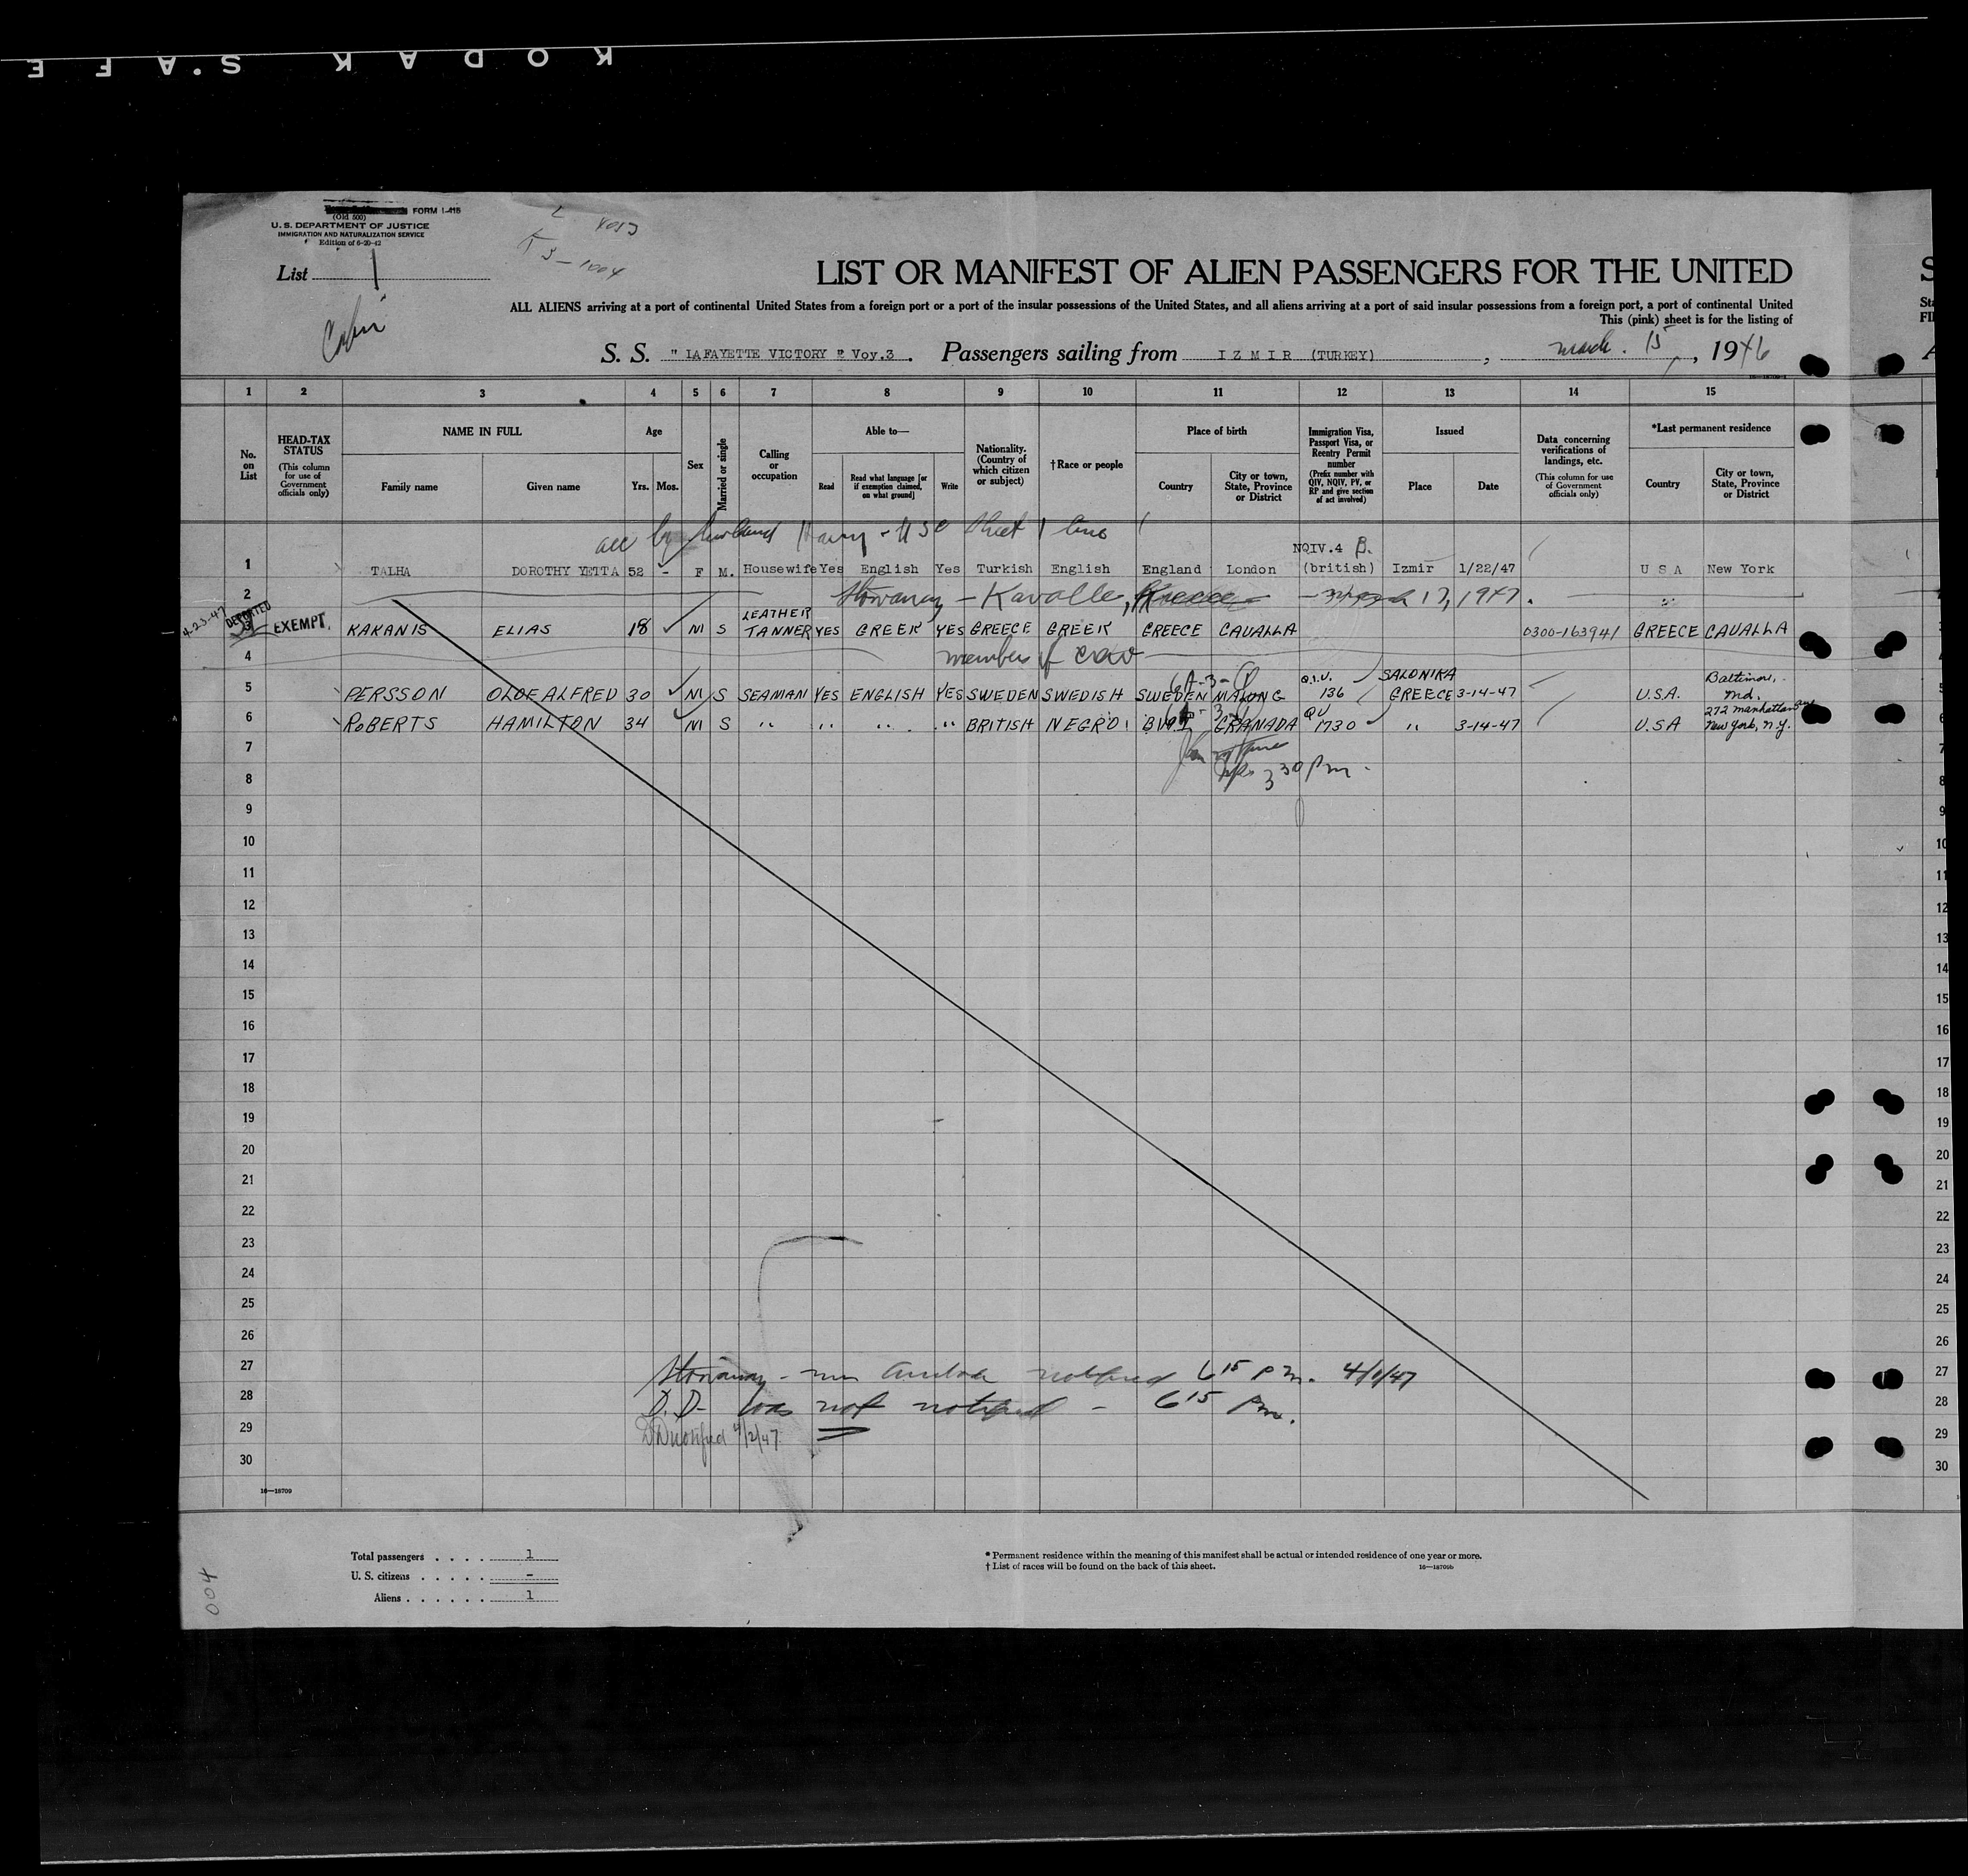 KODAK S.AFE
FORM I-415
(Old 500)
U. S. DEPARTMENT OF JUSTICE
IMMIGRATION AND NATURALIZATION SERVICE
Edition of 6-20-42
List 1
LIST OR MANIFEST OF ALIEN PASSENGERS FOR THE UNITED
ALL ALIENS arriving at a port of continental United States from a foreign port or a port of the insular possessions of the United States, and all aliens arriving at a port of said insular possessions from a foreign port, a port of continental United
This (pink) sheet is for the listing of
S. S. " LAFAYETTE VICTORY " Voy.3 . Passengers sailing from I Z M I R (TURKEY) , March. 15 , 1946
1 2 3 4 5 6 7 8 9 10 11 12 13 14 15
No. on List
HEAD-TAX STATUS
(This column for use of Government officials only)
NAME IN FULL
Family name
Given name
Age
Yrs. Mos.
Sex
Married or single
Calling or occupation
Able to—
Read
Read what language [or if exemption claimed, on what ground]
Write
Nationality. (Country of which citizen or subject)
†Race or people
Place of birth
Country
City or town, State, Province or District
Immigration Visa, Passport Visa, or Reentry Permit number
(Prefix number with QIV, NQIV, PV, or RP and give section of act involved)
Issued
Place
Date
Data concerning verifications of landings, etc.
(This column for use of Government officials only)
*Last permanent residence
Country
City or town, State, Province or District
acc by husband Harry - USC sheet 1 line 1
NQIV.4 B.
1 TALHA DOROTHY YETTA 52 - F M. Housewife Yes English Yes Turkish English England London (british) Izmir 1/22/47 U S A New York
2 Stowaway - Kavalla, Greece - March 17, 1947.
4-23-47 DEPORTED
LEATHER
3 EXEMPT. KAKANIS ELIAS 18 M S TANNER YES GREEK YES GREECE GREEK GREECE CAVALLA 0300-163941 GREECE CAVALLA
4 members of crew
6A-3-
Q.I.V. SALONIKA Baltimore,
5 PERSSON OLOF ALFRED 30 M S SEAMAN YES ENGLISH YES SWEDEN SWEDISH SWEDEN MALONG 136 GREECE 3-14-47 U.S.A. Md.
QV 272 Manhattan Ave
6 ROBERTS HAMILTON 34 M S " " " " " " " " BRITISH NEGRO B.W.I. GRANADA 1730 " 3-14-47 U.S.A New York, N.Y.
7
8 3 30 Pm.
9
10
11
12
13
14
15
16
17
18
19
20
21
22
23
24
25
26
27 Stowaway - notified 6 15 P m. 4/1/47
28 D.D- was not notified - 6 15 Pm.
29 DD notified 4/2/47
30
16—18709
Total passengers . . . . 1
U. S. citizens . . . . . -
Aliens . . . . . . 1
* Permanent residence within the meaning of this manifest shall be actual or intended residence of one year or more.
† List of races will be found on the back of this sheet.
16—18709b
400